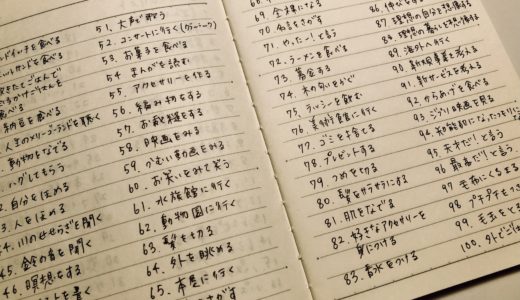 ンドイッチを食べる
ットサンドを食べる
をたてごはんで
食べる
納豆を食べる
人生のメリーゴーランドを聴く
動物をなでる
ハグしてもらう
自分をほめる
3. 人をほめる
4. 川のせせらぎを聞く
45. 金の音を聞く
46. 瞑想をする
を書く
51. 大声で歌う
52. コンサートに行く
53. お菓子を食べる
54. まんがを読む
55. アクセサリーを作る
56. 編み物をする
57. お散歩をする
58. 映画をみる
59. 動画をみる
60. お笑いをみて笑う
61. 水族館に行く
62. 動物園に行く
63. 髪を切る
64. 外を眺める
65. 本屋に行く
69. 全裸になる
70. 名言をさがす
71. やったー!と言う
72. ラーメンを食べる
73. 募金する
74. 木の匂いをかぐ
75. を飲む
76. 美術館に行く
77. ゴミをすてる
78. プレゼントする
79. つめをける
80. 髪をサラサラにする
81. 肌をなでる
82. 好きなアクセサリーを
身につける
83. 香水をつける
87. 理想の自分を想像する
88. 理想の暮らしを想像する
89. 海外へ行く
90. 新規事業を考える
91. 新サービスを考える
92. からあげを食べる
93. ジブリ映画を見る
94.
95. 天才だ!と言う
96. 最高だ!と言う
97. 毛布にくるまる
98. プチプチを
99. 毛玉をとる
100. 外で